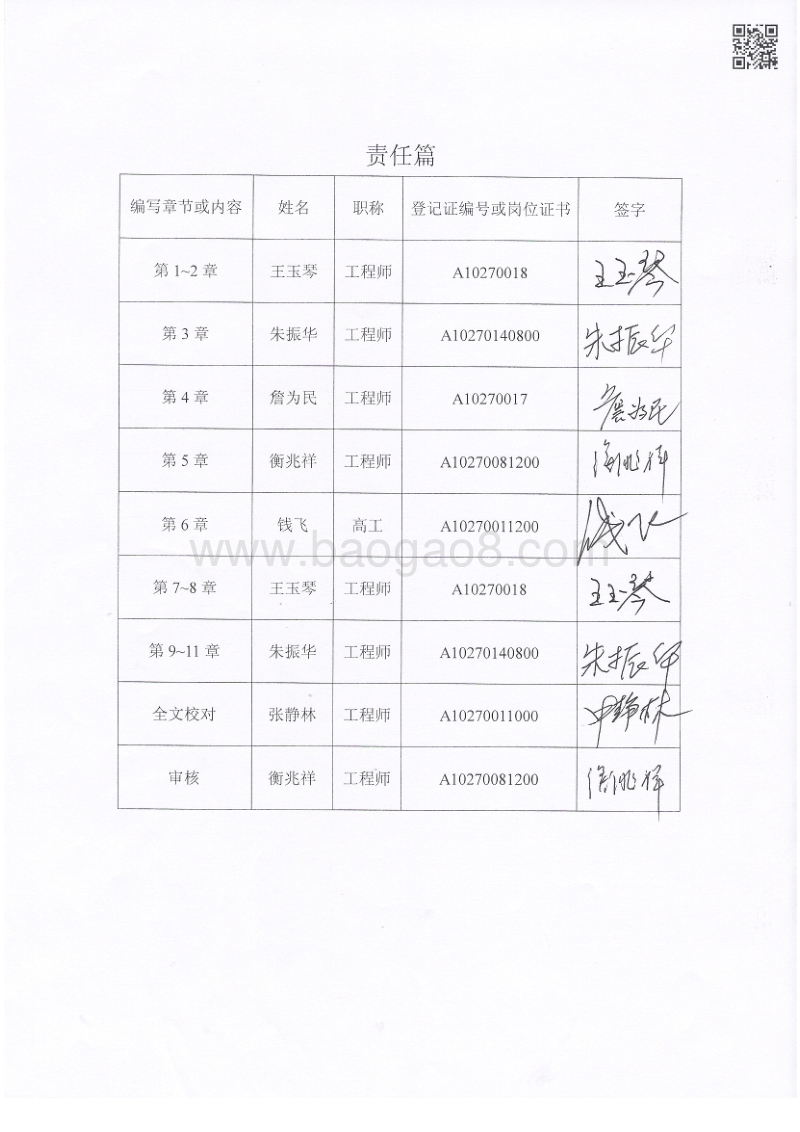 责任篇
编写章节或内容 姓名 职称 登记证编号或岗位证书 签字
第1~2章 王玉琴 工程师 A10270018 王玉琴
第3章 朱振华 工程师 A10270140800 朱振华
第4章 詹为民 工程师 A10270017 詹为民
第5章 衡兆祥 工程师 A10270081200 衡兆祥
第6章 钱飞 高工 A10270011200 钱飞
www.baogao8.com
第7~8章 王玉琴 工程师 A10270018 王玉琴
第9~11章 朱振华 工程师 A10270140800 朱振华
全文校对 张静林 工程师 A10270011000 张静林
审核 衡兆祥 工程师 A10270081200 衡兆祥